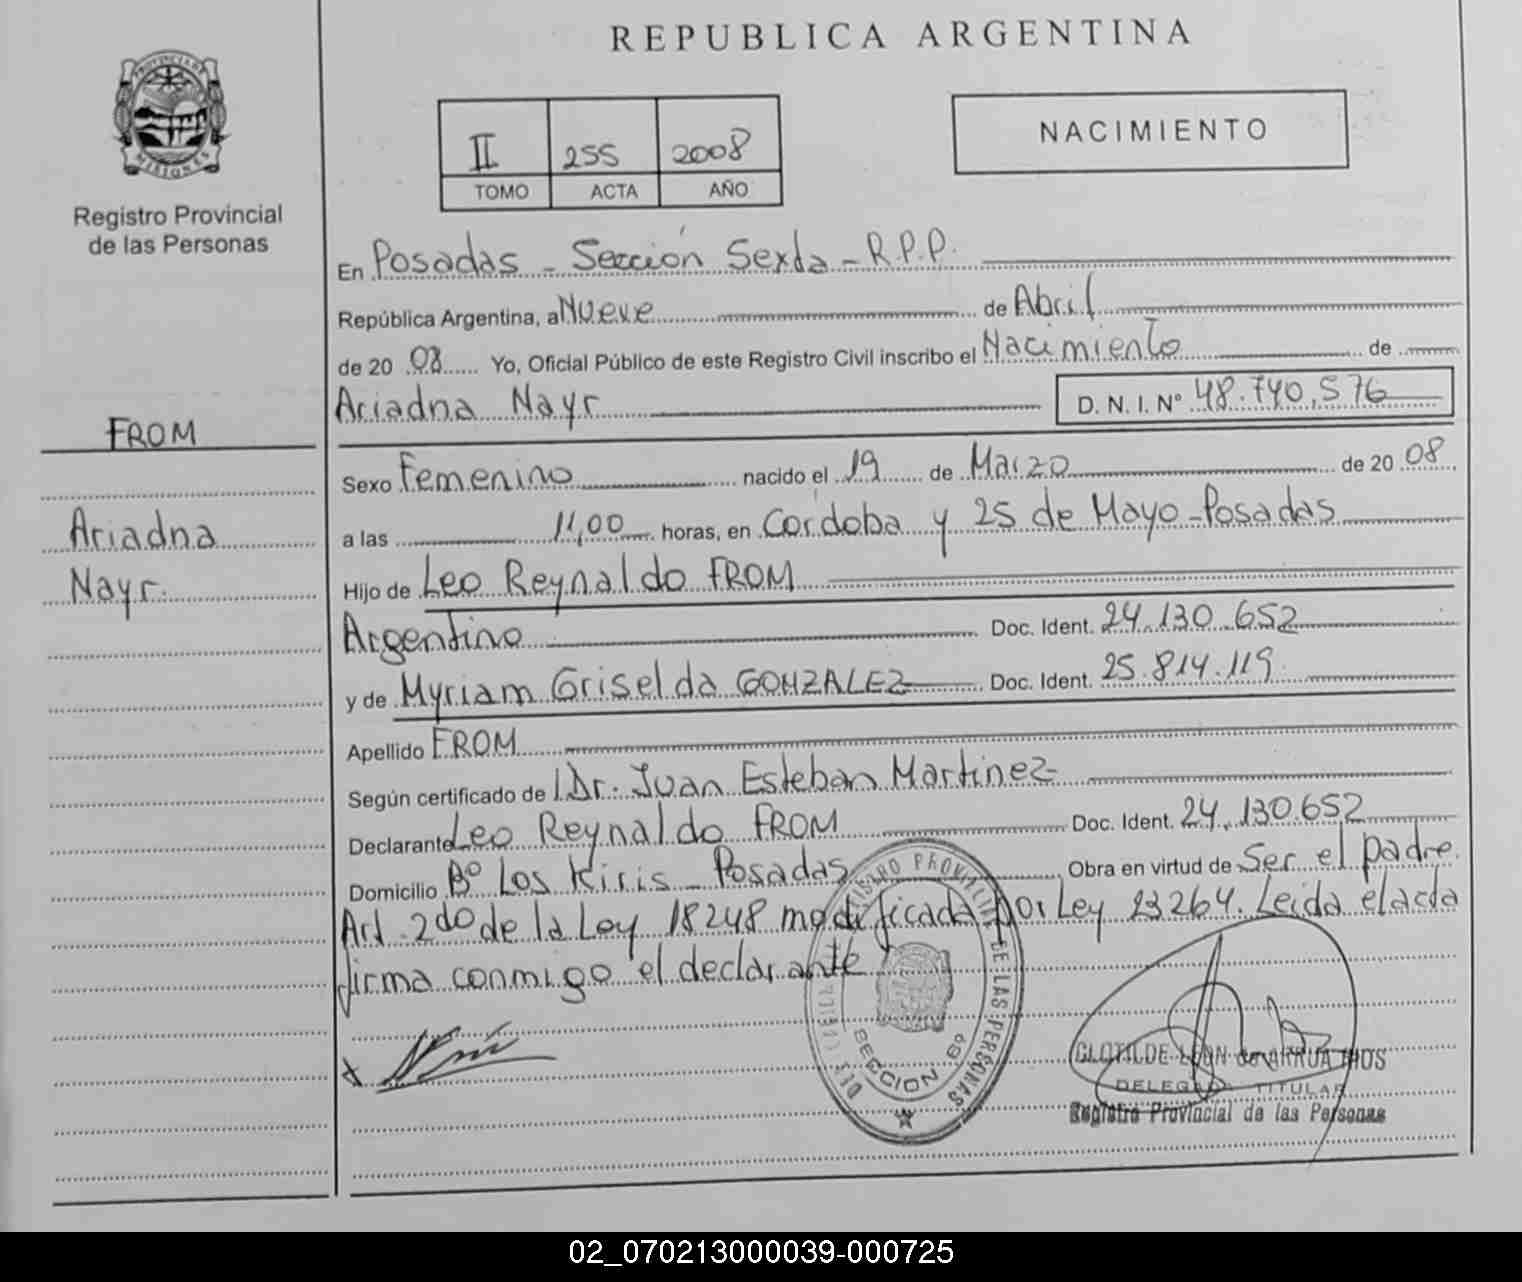 REPUBLICA ARGENTINA
PROVINCIA DE
MISIONES
Registro Provincial
de las Personas
II 255 2008
TOMO ACTA AÑO
NACIMIENTO
En Posadas - Sección Sexta - R.P.P.
República Argentina, a Nueve de Abril
de 20 08 Yo, Oficial Público de este Registro Civil inscribo el Nacimiento de
Ariadna Nayr D. N. I. N° 48.740.576
FROM
Sexo Femenino nacido el 19 de Marzo de 20 08
Ariadna
a las 11,00 horas, en Córdoba y 25 de Mayo - Posadas
Nayr.
Hijo de Leo Reynaldo FROM
Argentino Doc. Ident. 24.130.652
y de Myriam Griselda GONZALEZ Doc. Ident. 25.814.119
Apellido FROM
Según certificado de Dr. Juan Esteban Martinez
Declarante Leo Reynaldo FROM Doc. Ident. 24.130.652
Domicilio B° Los Kiris - Posadas Obra en virtud de Ser el padre.
Art. 2do de la Ley 18248 modificada por Ley 23264. Leida el acta
firma conmigo el declarante
REGISTRO PROVINCIAL DE LAS PERSONAS
SECCION 6º
CLOTILDE LEON de ARRUA
DELEGADA TITULAR
Registro Provincial de las Personas
02_070213000039-000725